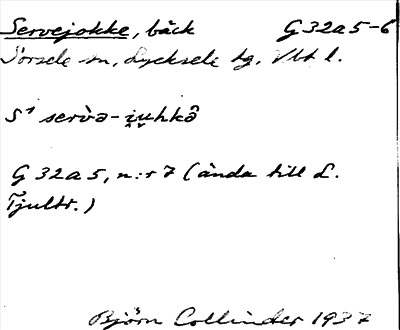 Servejokke, bäck G 32a5-6
Sorsele sn, Lycksele tg, Vbt l.
S¹ servə̀-i̯u̯hkə̂
G 32a5, n:r 7 (ända till L.
Tjultr.)
Björn Collinder 1937